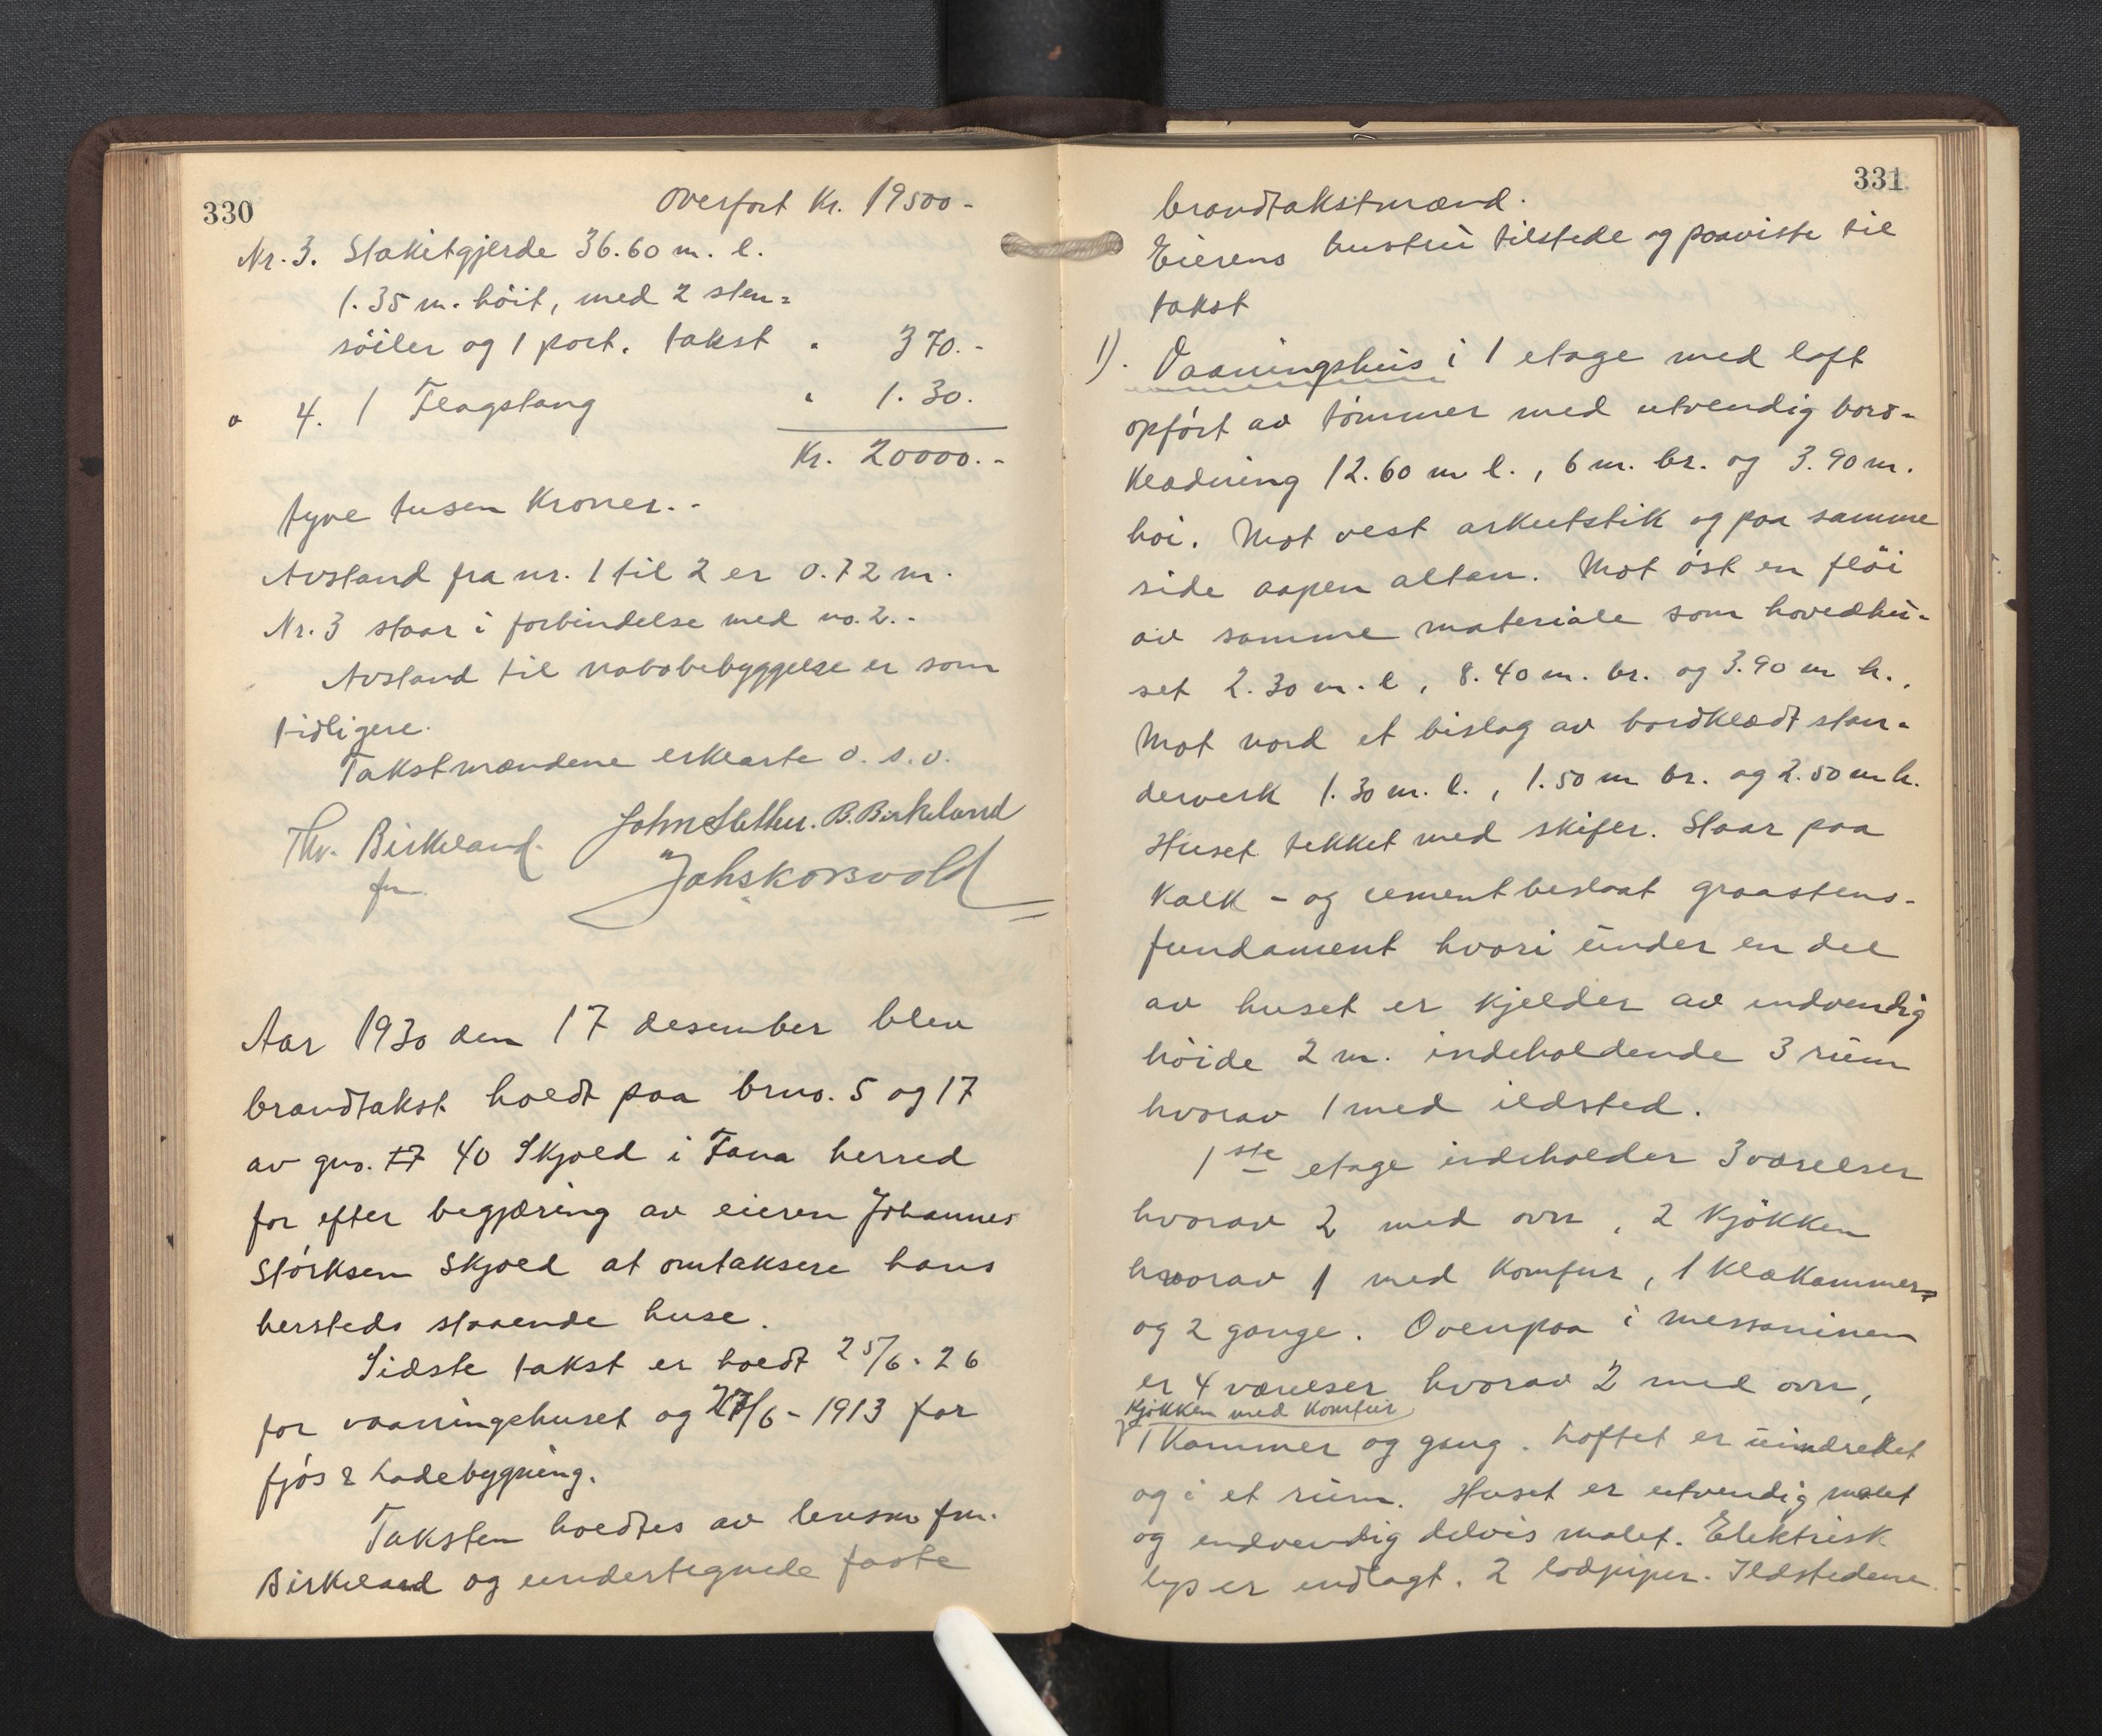 330
Overført Kr. 19500-
Nr. 3. Stakitgjerde 36.60 m. l.
1.35 m. höit, med 2 sten=
söiler og 1 port. takst " 370.-
" 4. 1 Flagstang " 1.30.
Kr. 20000.-
tyve tusen Kroner.-
Avstand fra nr. 1 til 2 er 0.72 m.
Nr. 3 staar i forbindelse med no. 2.-
Avstand til nabobebyggelse er som
tidligere.
Takstmændene erklærte o. s. v.
Thv. Birkeland. John Sletten. B. Birkeland
fm
Aar 1930 den 17 desember blev
brandtakst holdt paa brno. 5 og 17
av gno. 17 40 Skjold i Fana herred
for efter begjæring av eieren Johannes
Störksen Skjold at omtaksere hans
hersteds staaende huse.
Sidste takst er holdt 25/6. 26
for vaaningshuset og 27/6 - 1913 for
fjös & ladebygning.
Taksten holdtes av lensm fm.
Birkeland og undertegnede faste
331
brandtakstmænd.
Eierens hustrü tilstede og paaviste til
takst
1). Vaaningshüs i 1 etage med loft
opfört av tömmer med utvendig bord-
klædning 12.60 m l., 6 m. br. og 3.90 m.
höi. Mot vest arkutstik og paa samme
side aapen altan. Mot öst en flöi
av samme materiale som hovedhü-
set 2.30 m. l, 8.40 m. br. og 3.90 m h.,
Mot nord et bislag av bordklædt stan-
derverk 1.30 m. l., 1.50 m br. og 2.50 m h.
Huset tekket med skifer. Staar paa
kalk - og cementbeslaat graastens-
fundament hvori ünder en del
av huset er kjelder av indvendig
höide 2 m. indeholdende 3 rüm
hvorav 1 med ildsted.
1ste etage indeholder 3 værelser
hvorav 2 med ovn, 2 kjökken
hvorav 1 med komfur, 1 klækammer
og 2 gange. Ovenpaa i messaninen
er 4 værelser hvorav 2 med ovn,
kjökken med komfür
1 kammer og gang. Loftet er üindredet
og i et rüm. Huset er utvendig malet
og indvendig delvis malet. Elektrisk
lys er indlagt. 2 lodpiper. Ildstedene